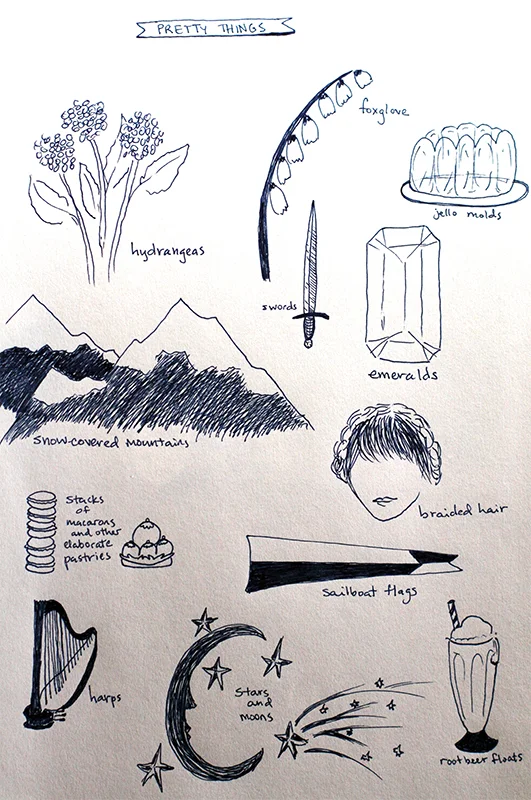 PRETTY THINGS
foxglove
jello molds
hydrangeas
swords
emeralds
snow-covered mountains
braided hair
stacks
of
macarons
and other
elaborate
pastries
sailboat flags
harps
stars
and
moons
root beer floats